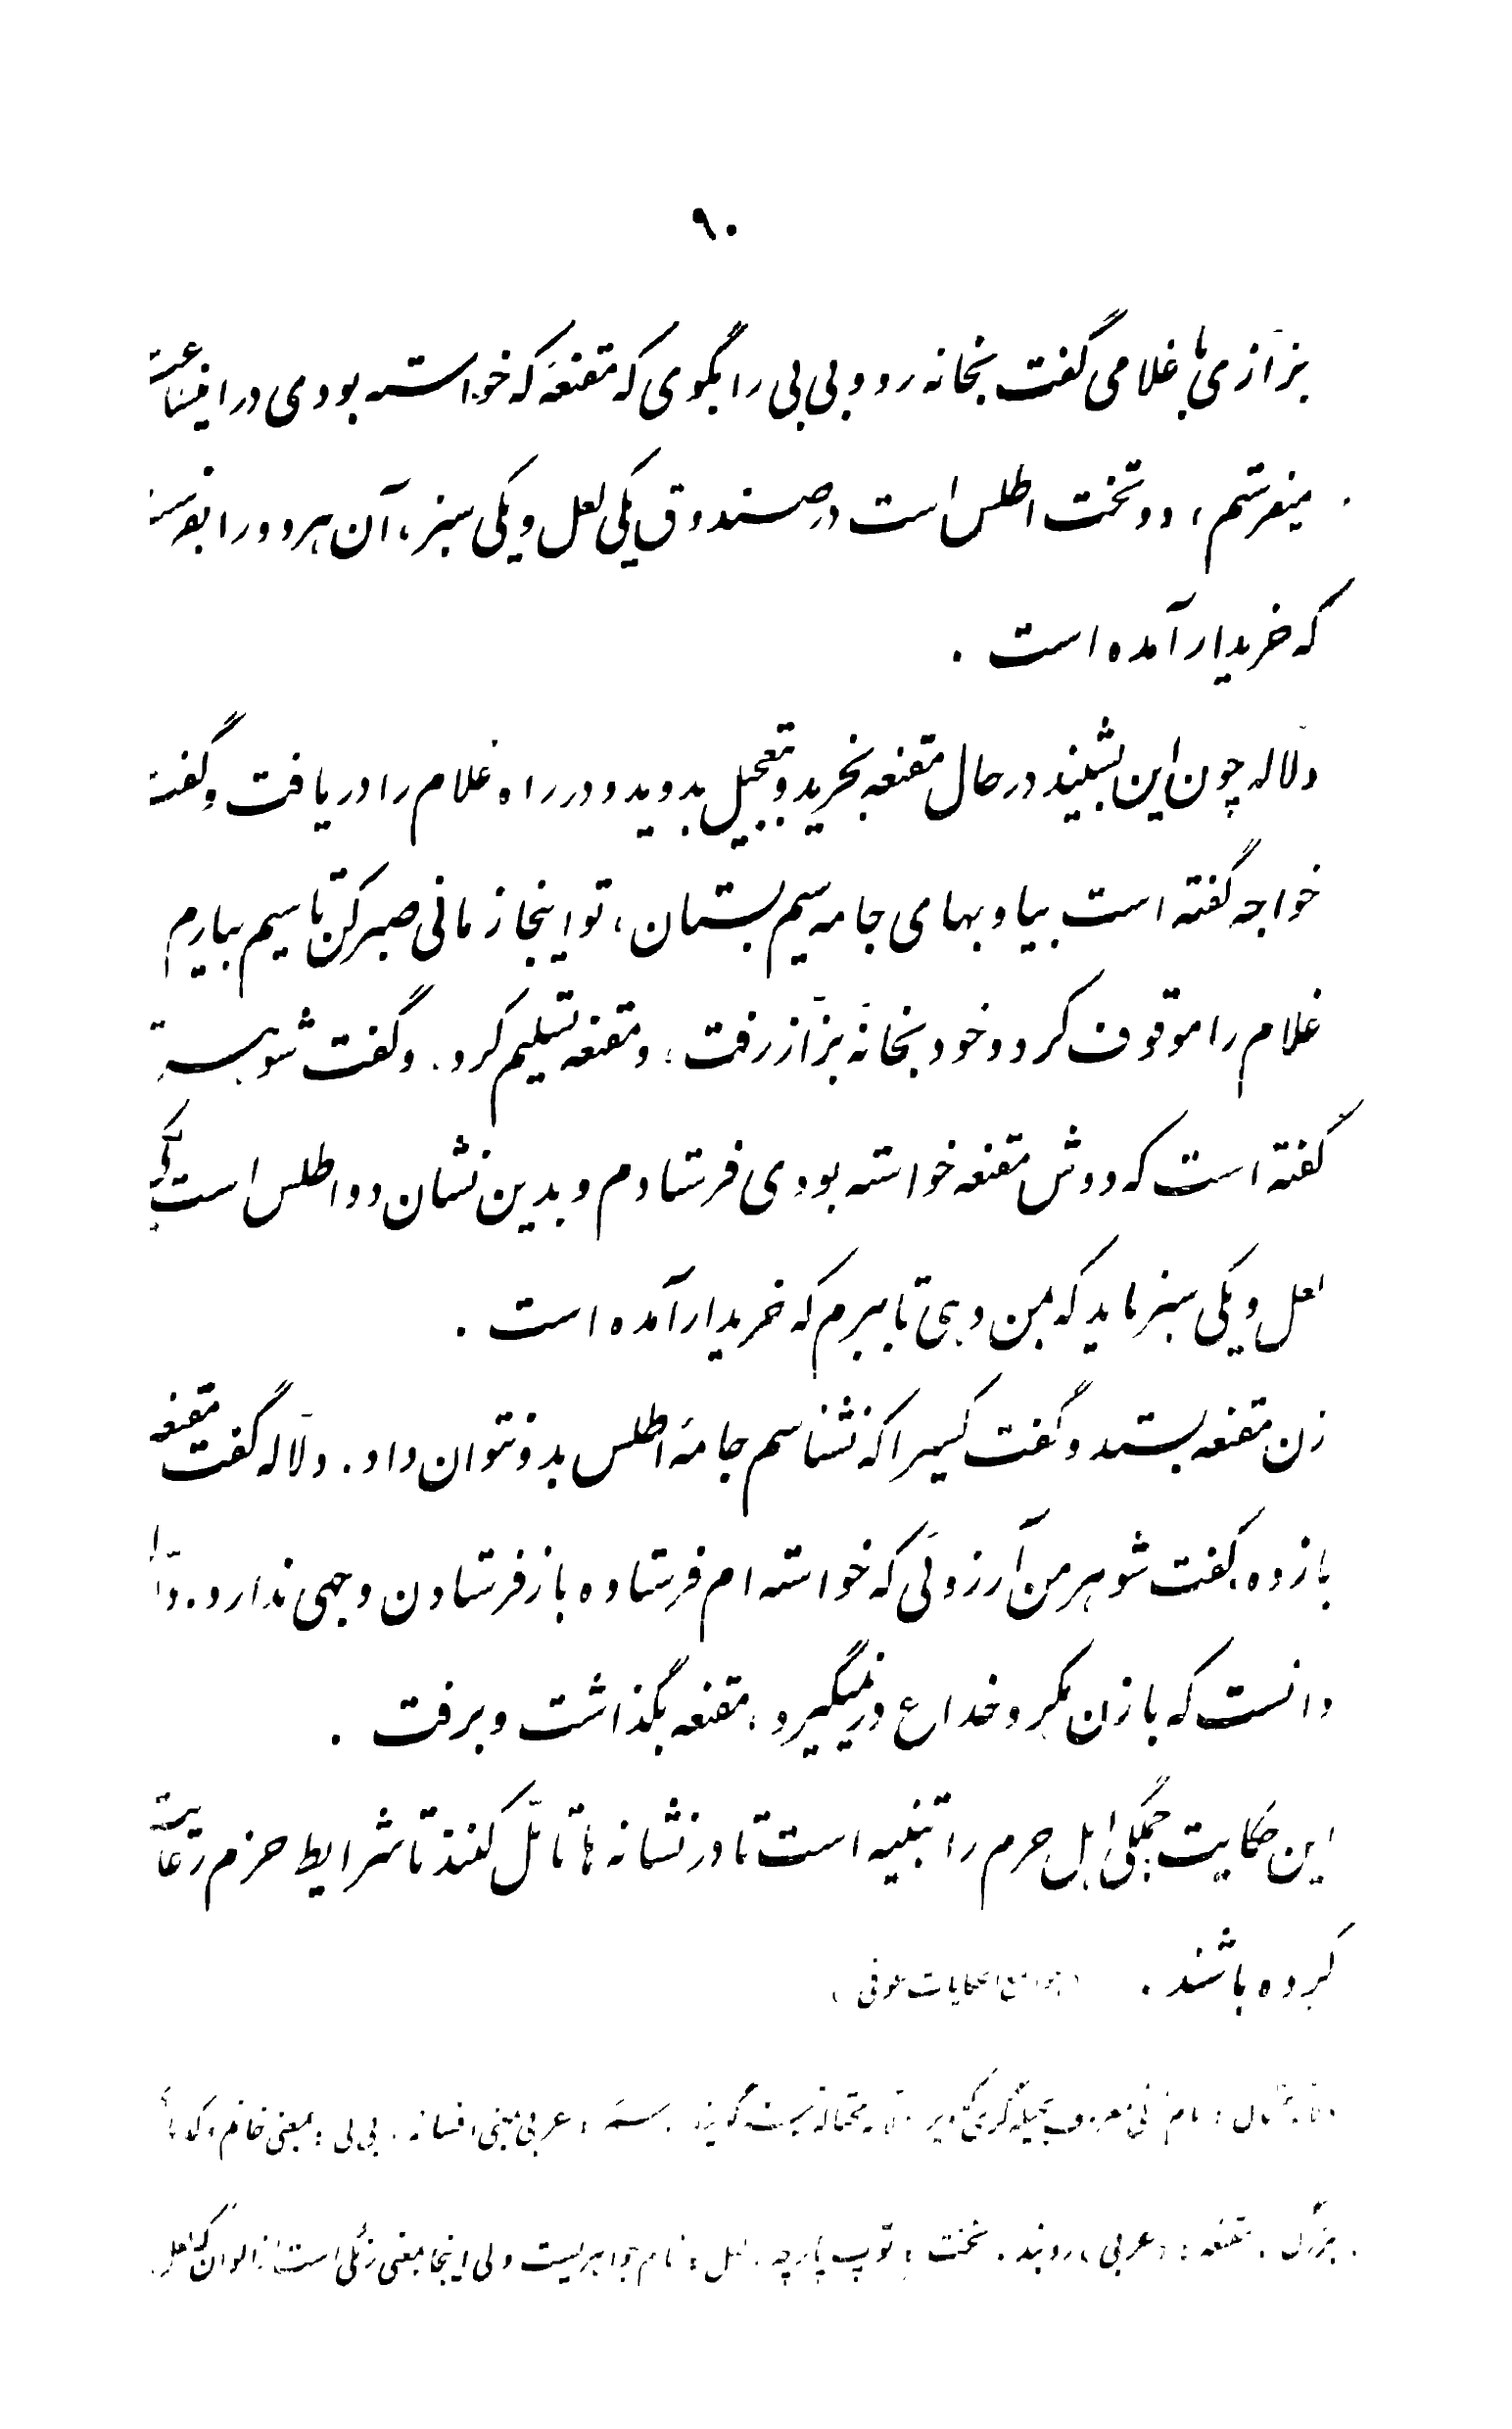 ۹۰
بزّازی با غلامی گفت بخانه رو و بی بی را بگوی که مقنعهٔ که خواسته بودی در اینساعت
میفرستم، دو تخت اطلس است در صندوق یکی لعل و یکی سبز، آن هر دو را بفرست
که خریدار آمده است .
دلاله چون این بشنید در حال مقنعه بخرید و بتعجیل بدوید و در راه غلام را دریافت و گفت
خواجه گفته است بیا و بهای جامه سیم بستان، تو اینجا زمانی صبر کن تا سیم بیارم
غلام را موقوف کرد و خود بخانهٔ بزّاز رفت، و مقنعه تسلیم کرد. و گفت شوهرت
گفته است که دوش مقنعه خواسته بودی فرستادم و بدین نشان دو اطلس است یکی
لعل و یکی سبز باید که بمن دهی تا ببرم که خریدار آمده است .
زن مقنعه بستد و گفت کسیرا که نشناسم جامهٔ اطلس بدو نتوان داد. دلّاله گفت مقنعه
باز ده، گفت شوهر من آرزوئی که خواسته ام فرستاده باز فرستادن وجهی ندارد. دلّاله
دانست که با زن مکر و خداع در نمیگیرد، مقنعه بگذاشت و برفت .
این حکایت جملگی اهل حرم را تنبیه است تا در نشانه ها تأمّل کنند تا شرایط حزم رعایت
کرده باشند . (جوامع الحکایات عوفی)
عربی بمعنی افسانه. بی بی : بمعنی خانم و کدبانو
بزرگ . مقنعه : (عربی) روبند . تخت : توپ پارچه . لعل : نام جواهریست ولی اینجا بمعنی رنگی است از الوان